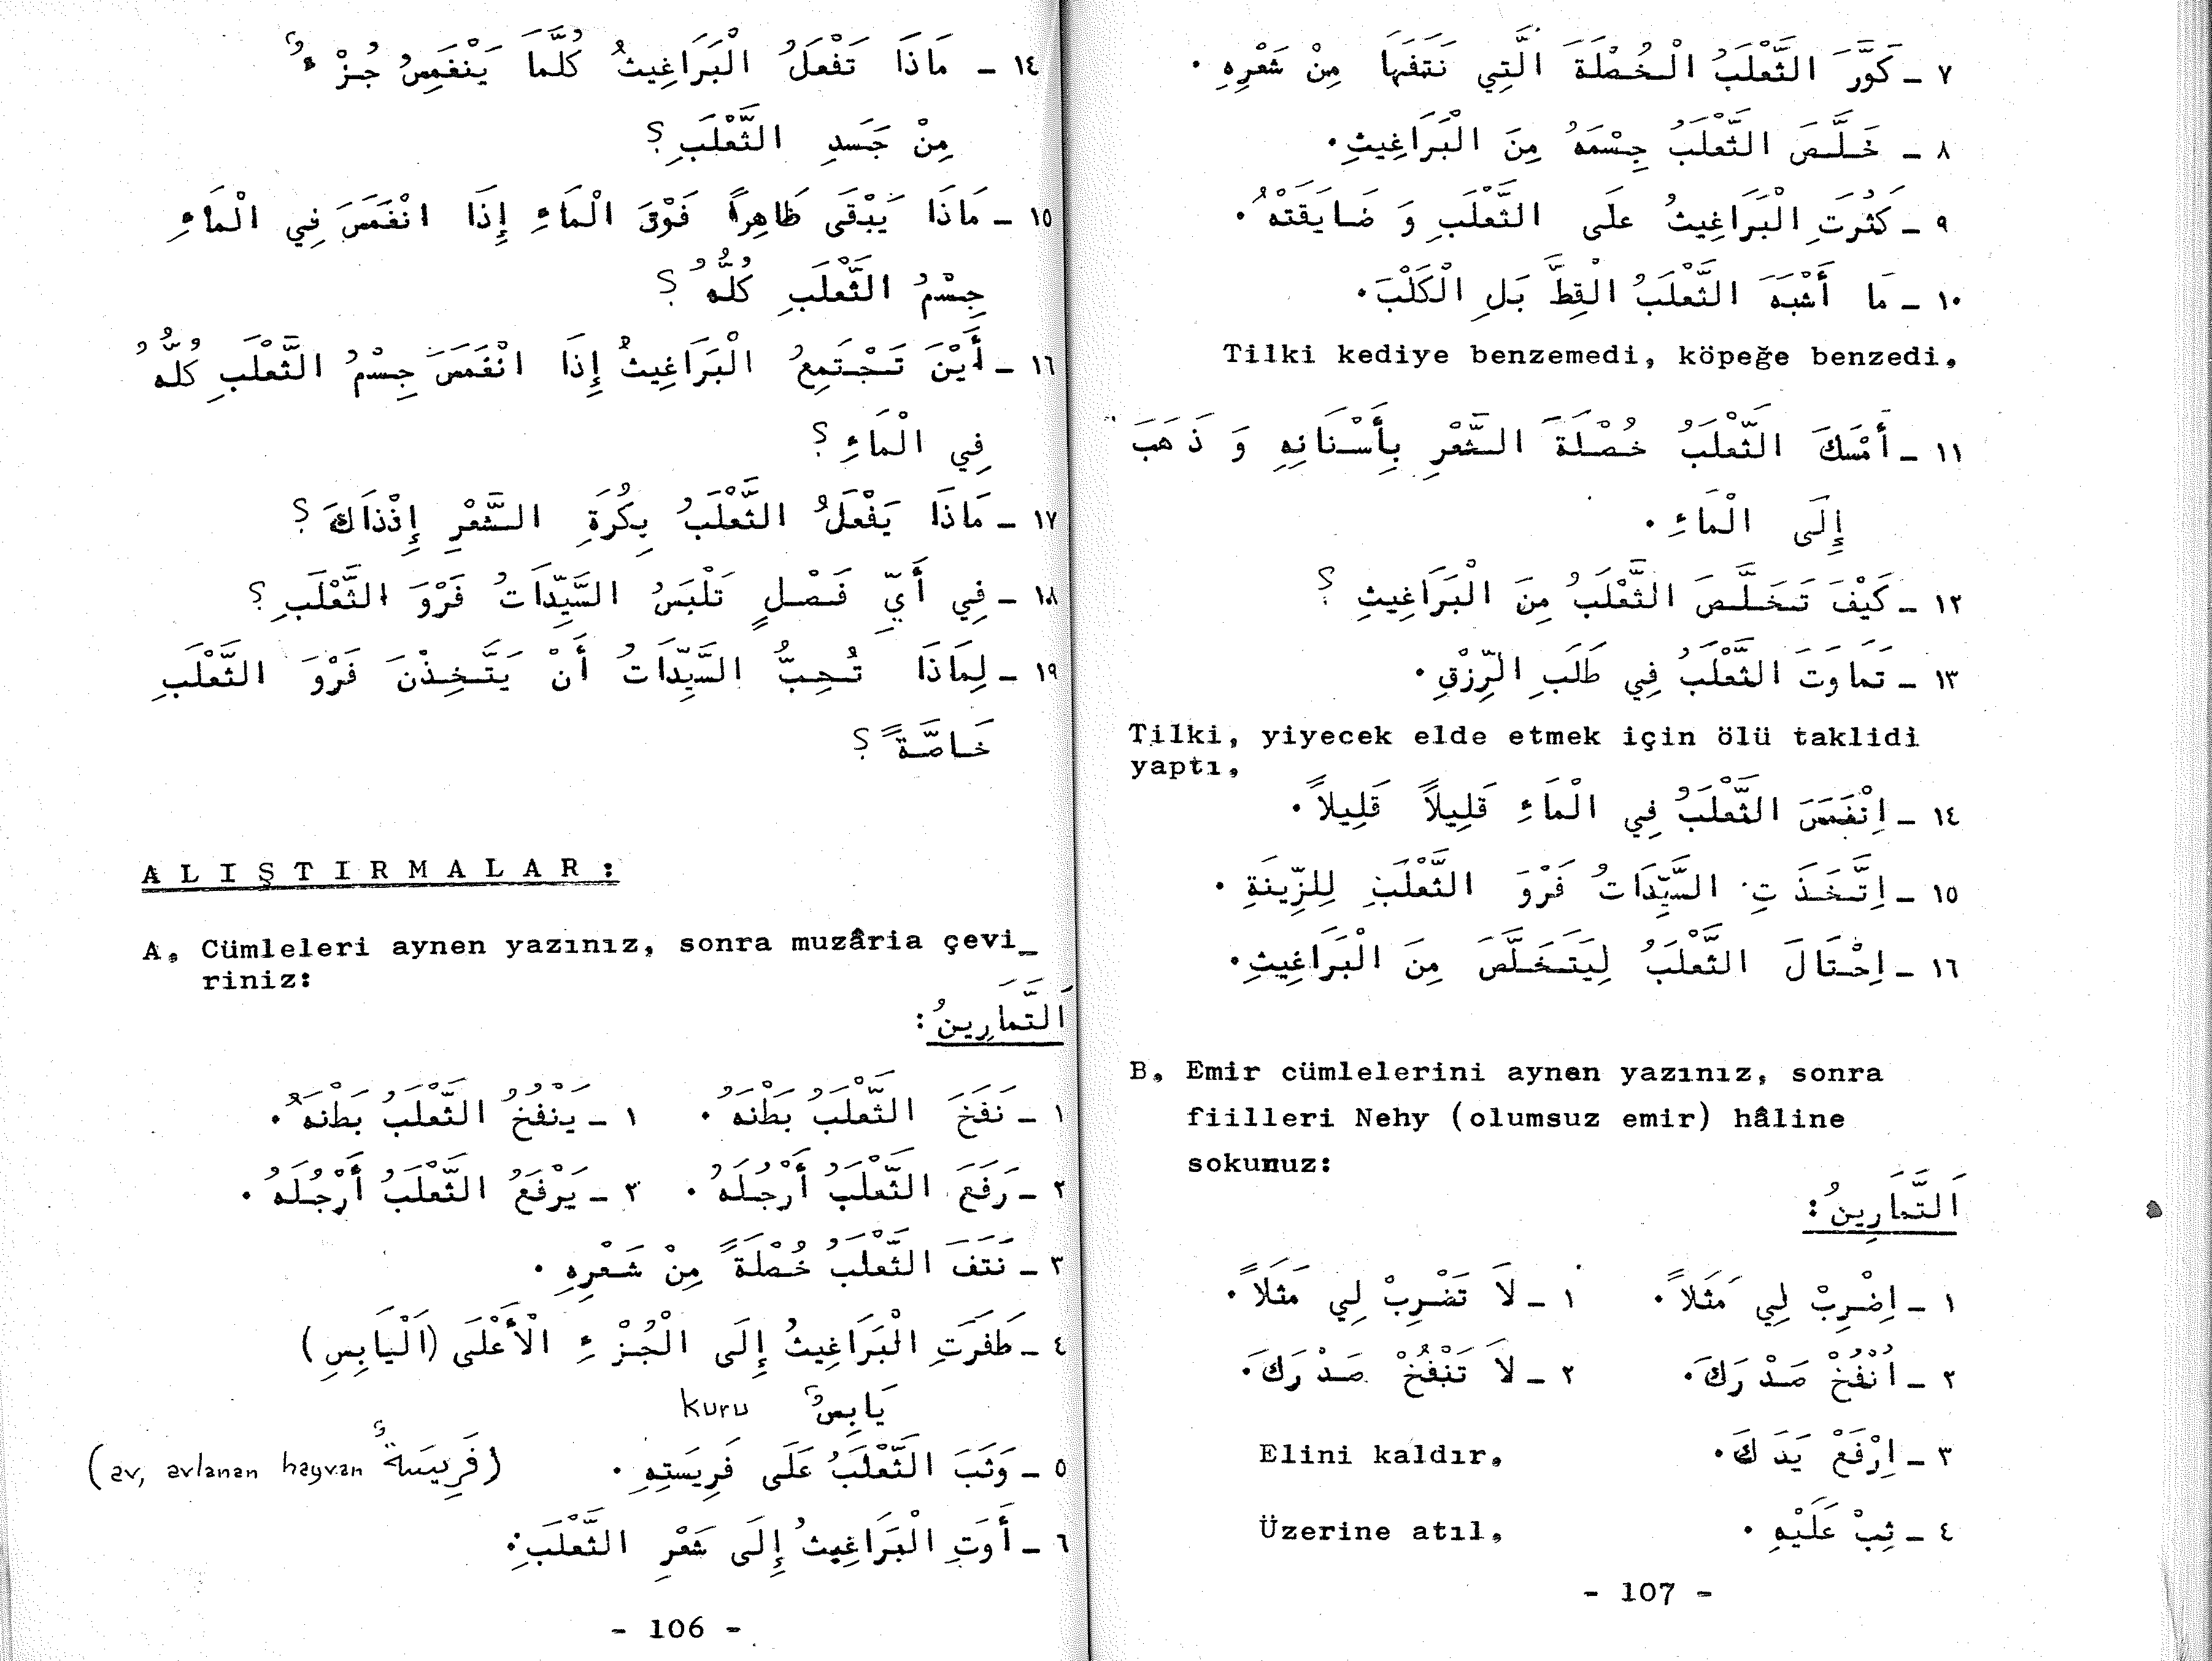 ١٤ - مَاذَا تَفْعَلُ الْبَرَاغِيثُ كُلَّمَا يَنْغَمِسُ جُزْءٌ
مِنْ جَسَدِ الثَّعْلَبِ؟
١٥ - مَاذَا يَبْقَى ظَاهِرًا فَوْقَ الْمَاءِ إِذَا انْغَمَسَ فِي الْمَاءِ
جِسْمُ الثَّعْلَبِ كُلُّهُ؟
١٦ - أَيْنَ تَجْتَمِعُ الْبَرَاغِيثُ إِذَا انْغَمَسَ جِسْمُ الثَّعْلَبِ كُلُّهُ
فِي الْمَاءِ؟
١٧ - مَاذَا يَفْعَلُ الثَّعْلَبُ بِكُرَةِ الشَّعْرِ إِذْذَاكَ؟
١٨ - فِي أَيِّ فَصْلٍ تَلْبَسُ السَّيِّدَاتُ فَرْوَ الثَّعْلَبِ؟
١٩ - لِمَاذَا تُحِبُّ السَّيِّدَاتُ أَنْ يَتَّخِذْنَ فَرْوَ الثَّعْلَبِ
خَاصَّةً؟
ALIŞTIRMALAR:
A. Cümleleri aynen yazınız, sonra muzâria çevi_
riniz:
اَلتَّمَارِينُ:
١ - نَفَخَ الثَّعْلَبُ بَطْنَهُ. ١ - يَنْفُخُ الثَّعْلَبُ بَطْنَهُ.
٢ - رَفَعَ الثَّعْلَبُ أَرْجُلَهُ. ٢ - يَرْفَعُ الثَّعْلَبُ أَرْجُلَهُ.
٣ - نَتَفَ الثَّعْلَبُ خُصْلَةً مِنْ شَعْرِهِ.
٤ - طَفَرَتِ الْبَرَاغِيثُ إِلَى الْجُزْءِ الْأَعْلَى (اَلْيَابِسِ)
يَابِسٌ kuru
٥ - وَثَبَ الثَّعْلَبُ عَلَى فَرِيسَتِهِ. (فَرِيسَةٌ av, avlanan hayvan)
٦ - أَوَتِ الْبَرَاغِيثُ إِلَى شَعْرِ الثَّعْلَبِ.
- 106 -
٧ - كَوَّرَ الثَّعْلَبُ الْخُصْلَةَ الَّتِي نَتَفَهَا مِنْ شَعْرِهِ.
٨ - خَلَّصَ الثَّعْلَبُ جِسْمَهُ مِنَ الْبَرَاغِيثِ.
٩ - كَثُرَتِ الْبَرَاغِيثُ عَلَى الثَّعْلَبِ وَ ضَايَقَتْهُ.
١٠ - مَا أَشْبَهَ الثَّعْلَبُ الْقِطَّ بَلِ الْكَلْبَ.
Tilki kediye benzemedi, köpeğe benzedi.
١١ - أَمْسَكَ الثَّعْلَبُ خُصْلَةَ الشَّعْرِ بِأَسْنَانِهِ وَ ذَهَبَ
إِلَى الْمَاءِ.
١٢ - كَيْفَ تَخَلَّصَ الثَّعْلَبُ مِنَ الْبَرَاغِيثِ؟
١٣ - تَمَاوَتَ الثَّعْلَبُ فِي طَلَبِ الرِّزْقِ.
Tilki, yiyecek elde etmek için ölü taklidi
yaptı.
١٤ - اِنْغَمَسَ الثَّعْلَبُ فِي الْمَاءِ قَلِيلاً قَلِيلاً.
١٥ - اِتَّخَذَتِ السَّيِّدَاتُ فَرْوَ الثَّعْلَبِ لِلزِّينَةِ.
١٦ - اِحْتَالَ الثَّعْلَبُ لِيَتَخَلَّصَ مِنَ الْبَرَاغِيثِ.
B. Emir cümlelerini aynen yazınız, sonra
fiilleri Nehy (olumsuz emir) hâline
sokunuz:
اَلتَّمَارِينُ:
١ - اِضْرِبْ لِي مَثَلاً. ١ - لاَ تَضْرِبْ لِي مَثَلاً.
٢ - اُنْفُخْ صَدْرَكَ. ٢ - لاَ تَنْفُخْ صَدْرَكَ.
٣ - اِرْفَعْ يَدَكَ. Elini kaldır.
٤ - ثِبْ عَلَيْهِ. Üzerine atıl.
- 107 -